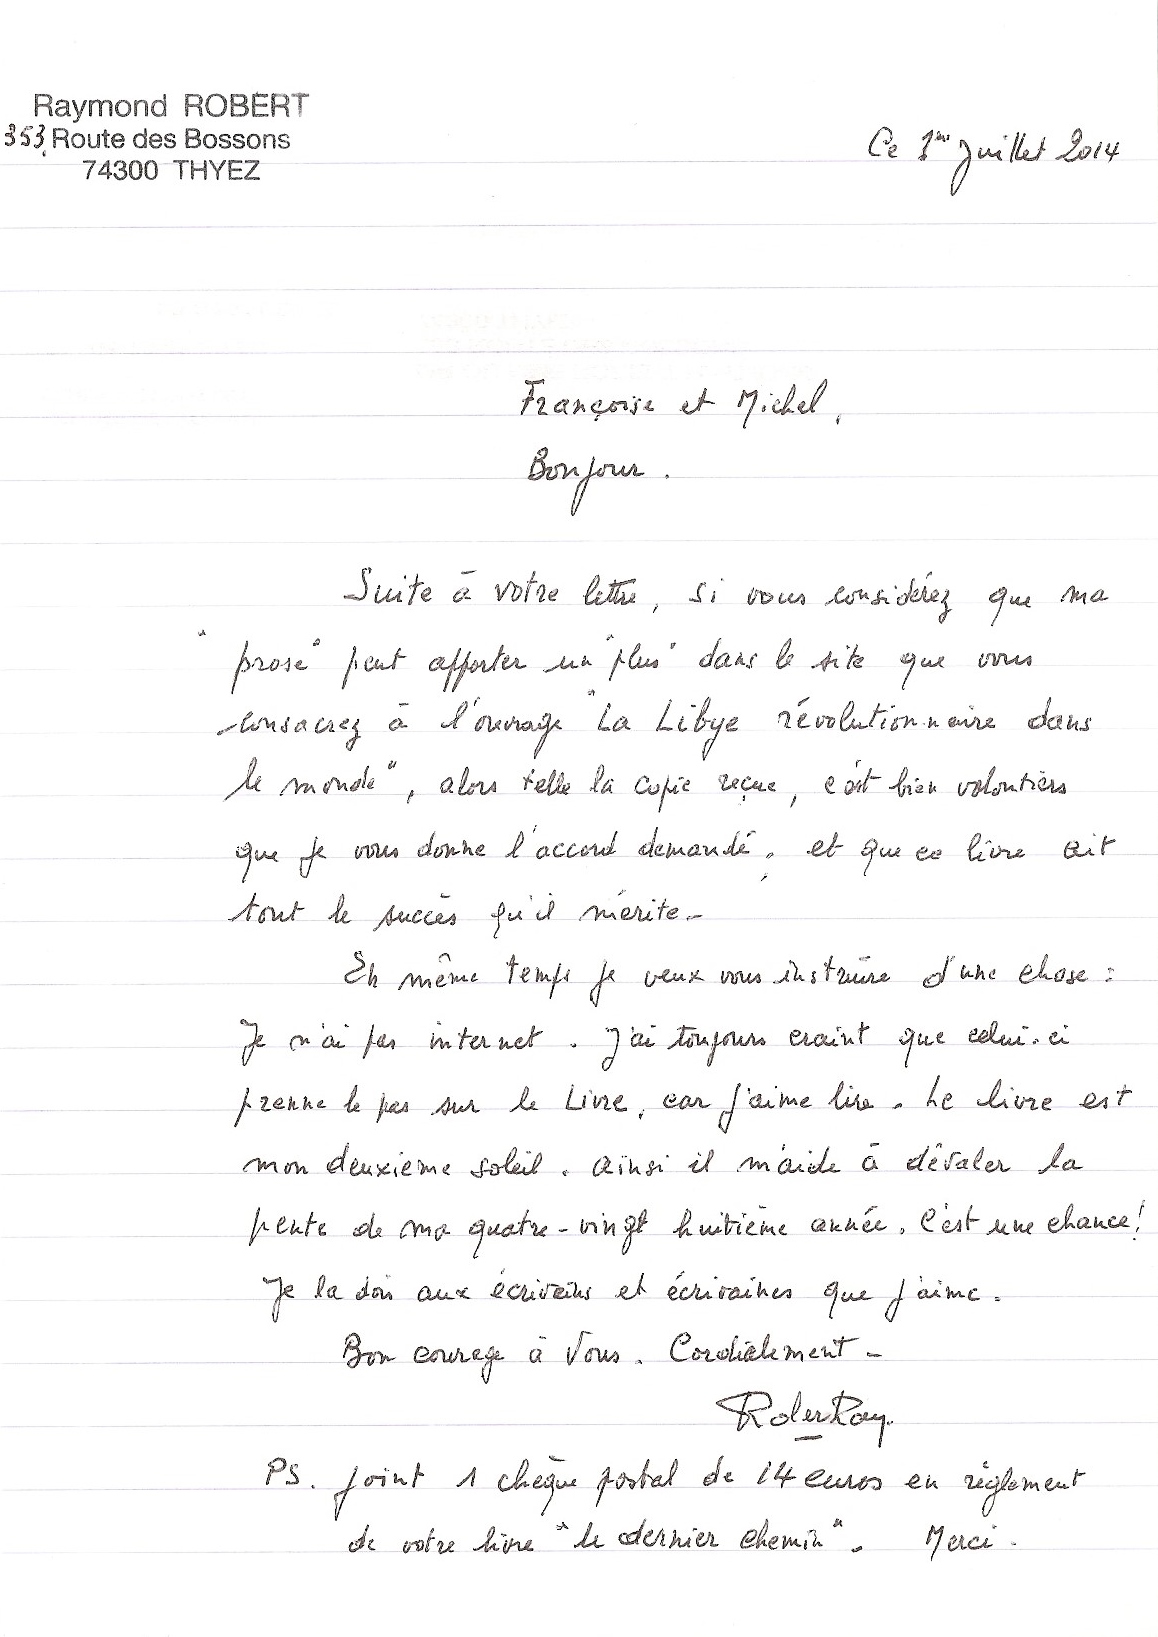 Raymond ROBERT
353, Route des Bossons
74300 THYEZ
Ce 1er Juillet 2014
Françoise et Michel,
Bonjour.
Suite à votre lettre, si vous considérez que ma
"prose" peut apporter un "plus" dans le site que vous
consacrez à l'ouvrage "La Libye révolutionnaire dans
le monde", alors telle la copie reçue, c'est bien volontiers
que je vous donne l'accord demandé, et que ce livre ait
tout le succès qu'il mérite.-
En même temps je veux vous instruire d'une chose :
Je n'ai pas internet. J'ai toujours craint que celui-ci
prenne le pas sur le Livre, car j'aime lire. Le livre est
mon deuxième soleil. Ainsi il m'aide à dévaler la
pente de ma quatre-vingt huitième année. C'est une chance!
Je la dois aux écrivains et écrivaines que j'aime.
Bon courage à Vous. Cordialement -
PS. Joint 1 chèque postal de 14 euros en règlement
de votre livre "le dernier chemin". Merci.